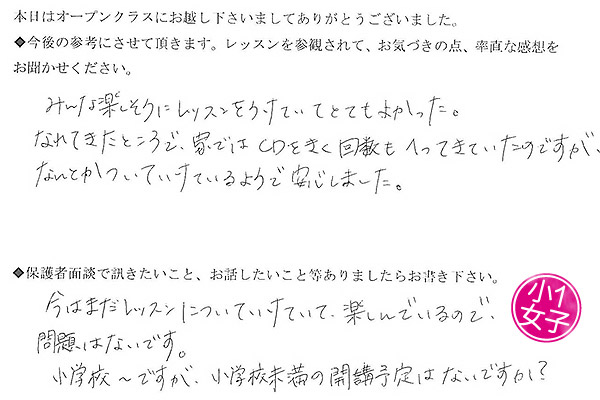 本日はオープンクラスにお越し下さいましてありがとうございました。
◆今後の参考にさせて頂きます。レッスンを参観されて、お気づきの点、率直な感想を
お聞かせください。
みんな楽しそうにレッスンをうけていてとてもよかった。
なれてきたところで、家ではCDをきく回数もへってきていたのですが、
なんとかついていけているようで安心しました。
◆保護者面談で訊きたいこと、お話したいこと等ありましたらお書き下さい。
今はまだレッスンについていけていて、楽しんでいるので、
問題はないです。
小学校〜ですが、小学校未満の開講予定はないですか？
小1
女子